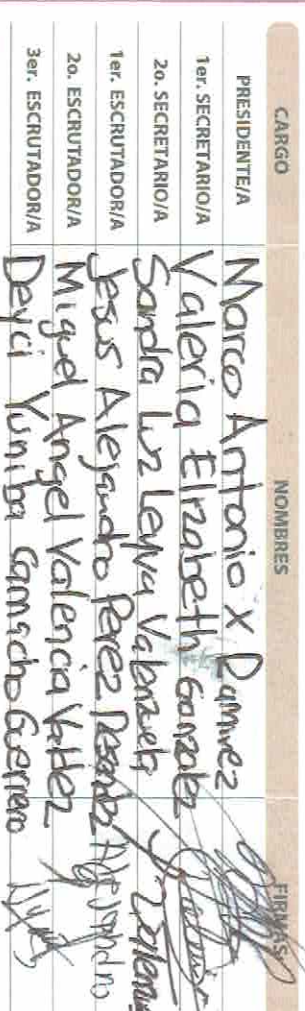 CARGO NOMBRES FIRMAS
PRESIDENTE/A Marco Antonio X Ramirez
1er. SECRETARIO/A Valeria Elizabeth Gonzalez
2o. SECRETARIO/A Sandra Luz Leyva Valenzuela
1er. ESCRUTADOR/A Jesus Alejandro Perez Alejandro
2o. ESCRUTADOR/A Miguel Angel Valencia Valdez
3er. ESCRUTADOR/A Deyci Yuniba Camacho Guerrero